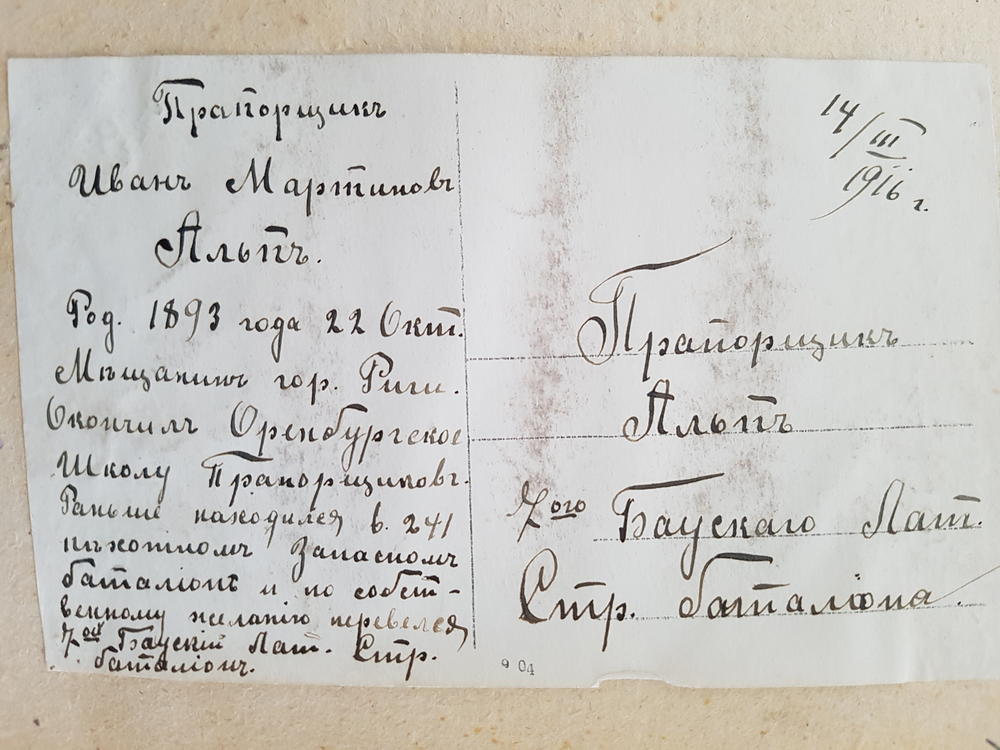 Прапорщикъ
Иванъ Мартиновъ
Альпъ.
Род. 1893 года 22 Окт.
Мѣщанинъ гор. Риги.
Окончилъ Оренбургское
Школу Прапорщиковъ.
Раньше находился в. 241
пѣхотномъ Запасномъ
баталіонѣ и по собст-
венному желанію перевелся
7ой Баускій Лат. Стр.
баталіонъ.
14/III
1916 г.
Прапорщикъ
Альпъ
7ого Баускаго Лат.
Стр. баталіона.
9 04